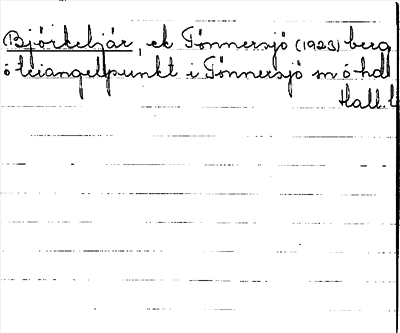 Björkeljár, ek Tönnersjö (1923) berg
ö triangelpunkt i Tönnersjö sn o hd
Hall. l